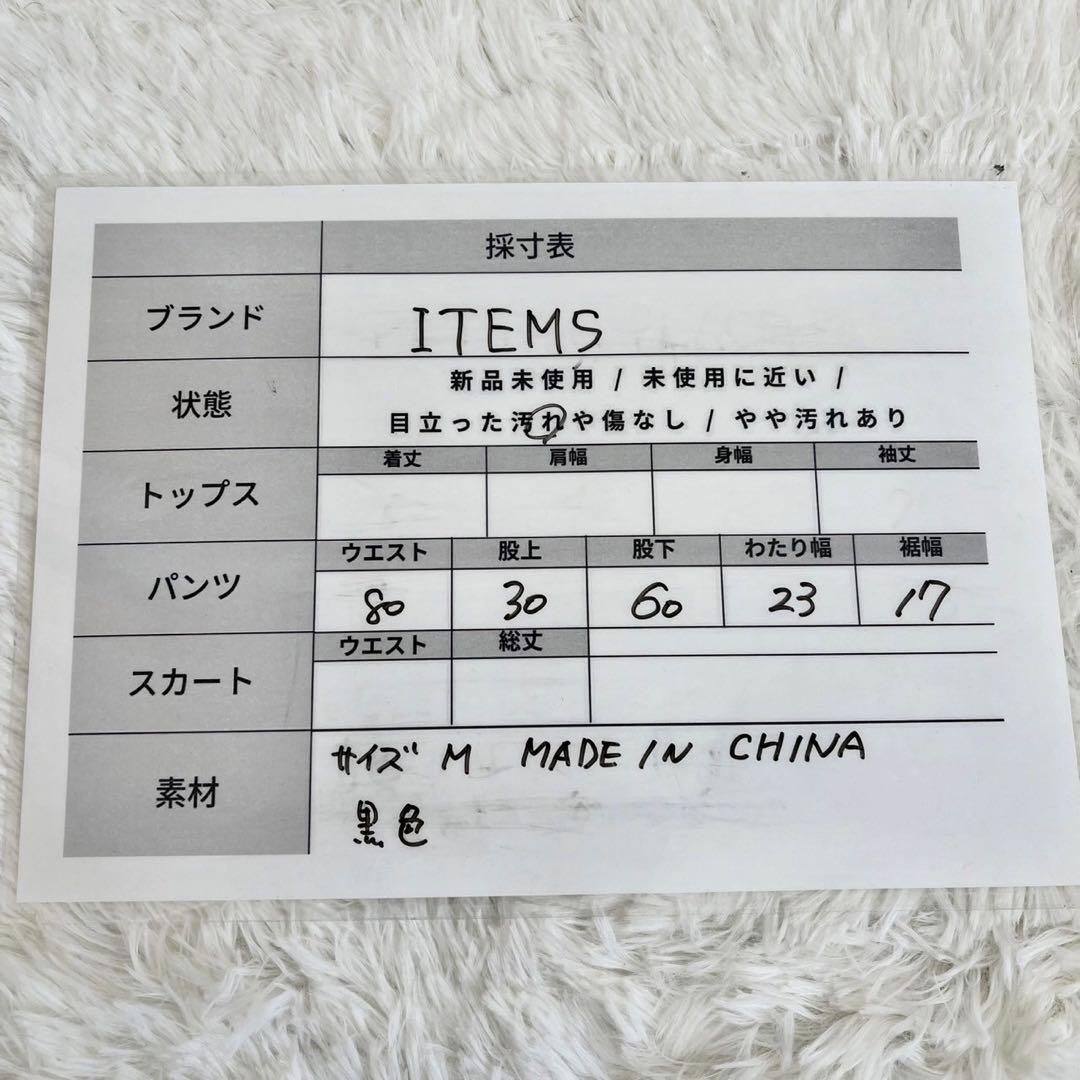 採寸表
ブランド
ITEMS
状態
新品未使用 / 未使用に近い /
目立った汚れや傷なし / やや汚れあり
トップス
着丈 肩幅 身幅 袖丈
パンツ
ウエスト 股上 股下 わたり幅 裾幅
80 30 60 23 17
スカート
ウエスト 総丈
素材
サイズ M MADE IN CHINA
黒色